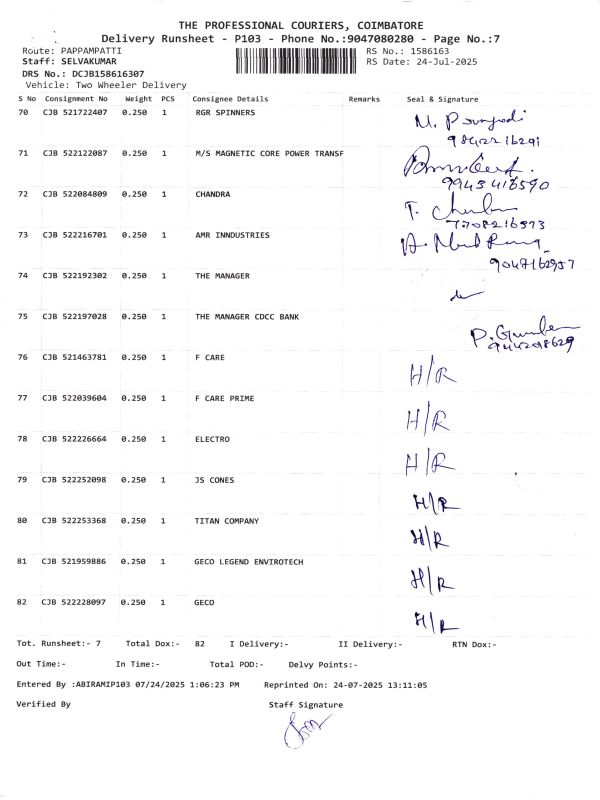 THE PROFESSIONAL COURIERS, COIMBATORE
Delivery Runsheet - P103 - Phone No.:9047080280 - Page No.:7
Route: PAPPAMPATTI RS No.: 1586163
Staff: SELVAKUMAR RS Date: 24-Jul-2025
DRS No.: DCJB158616307
Vehicle: Two Wheeler Delivery
S No Consignment No Weight PCS Consignee Details Remarks Seal & Signature
70 CJB 521722407 0.250 1 RGR SPINNERS
9842216291
71 CJB 522122087 0.250 1 M/S MAGNETIC CORE POWER TRANSF
9943416590
72 CJB 522084809 0.250 1 CHANDRA
7708216373
73 CJB 522216701 0.250 1 AMR INNDUSTRIES
9047162957
74 CJB 522192302 0.250 1 THE MANAGER
75 CJB 522197028 0.250 1 THE MANAGER CDCC BANK
76 CJB 521463781 0.250 1 F CARE H/R
77 CJB 522039604 0.250 1 F CARE PRIME H/R
78 CJB 522226664 0.250 1 ELECTRO H/R
79 CJB 522252098 0.250 1 JS CONES H/R
80 CJB 522253368 0.250 1 TITAN COMPANY H/R
81 CJB 521959886 0.250 1 GECO LEGEND ENVIROTECH H/R
82 CJB 522228097 0.250 1 GECO H/R
Tot. Runsheet:- 7 Total Dox:- 82 I Delivery:- II Delivery:- RTN Dox:-
Out Time:- In Time:- Total POD:- Delvy Points:-
Entered By :ABIRAMIP103 07/24/2025 1:06:23 PM Reprinted On: 24-07-2025 13:11:05
Verified By Staff Signature